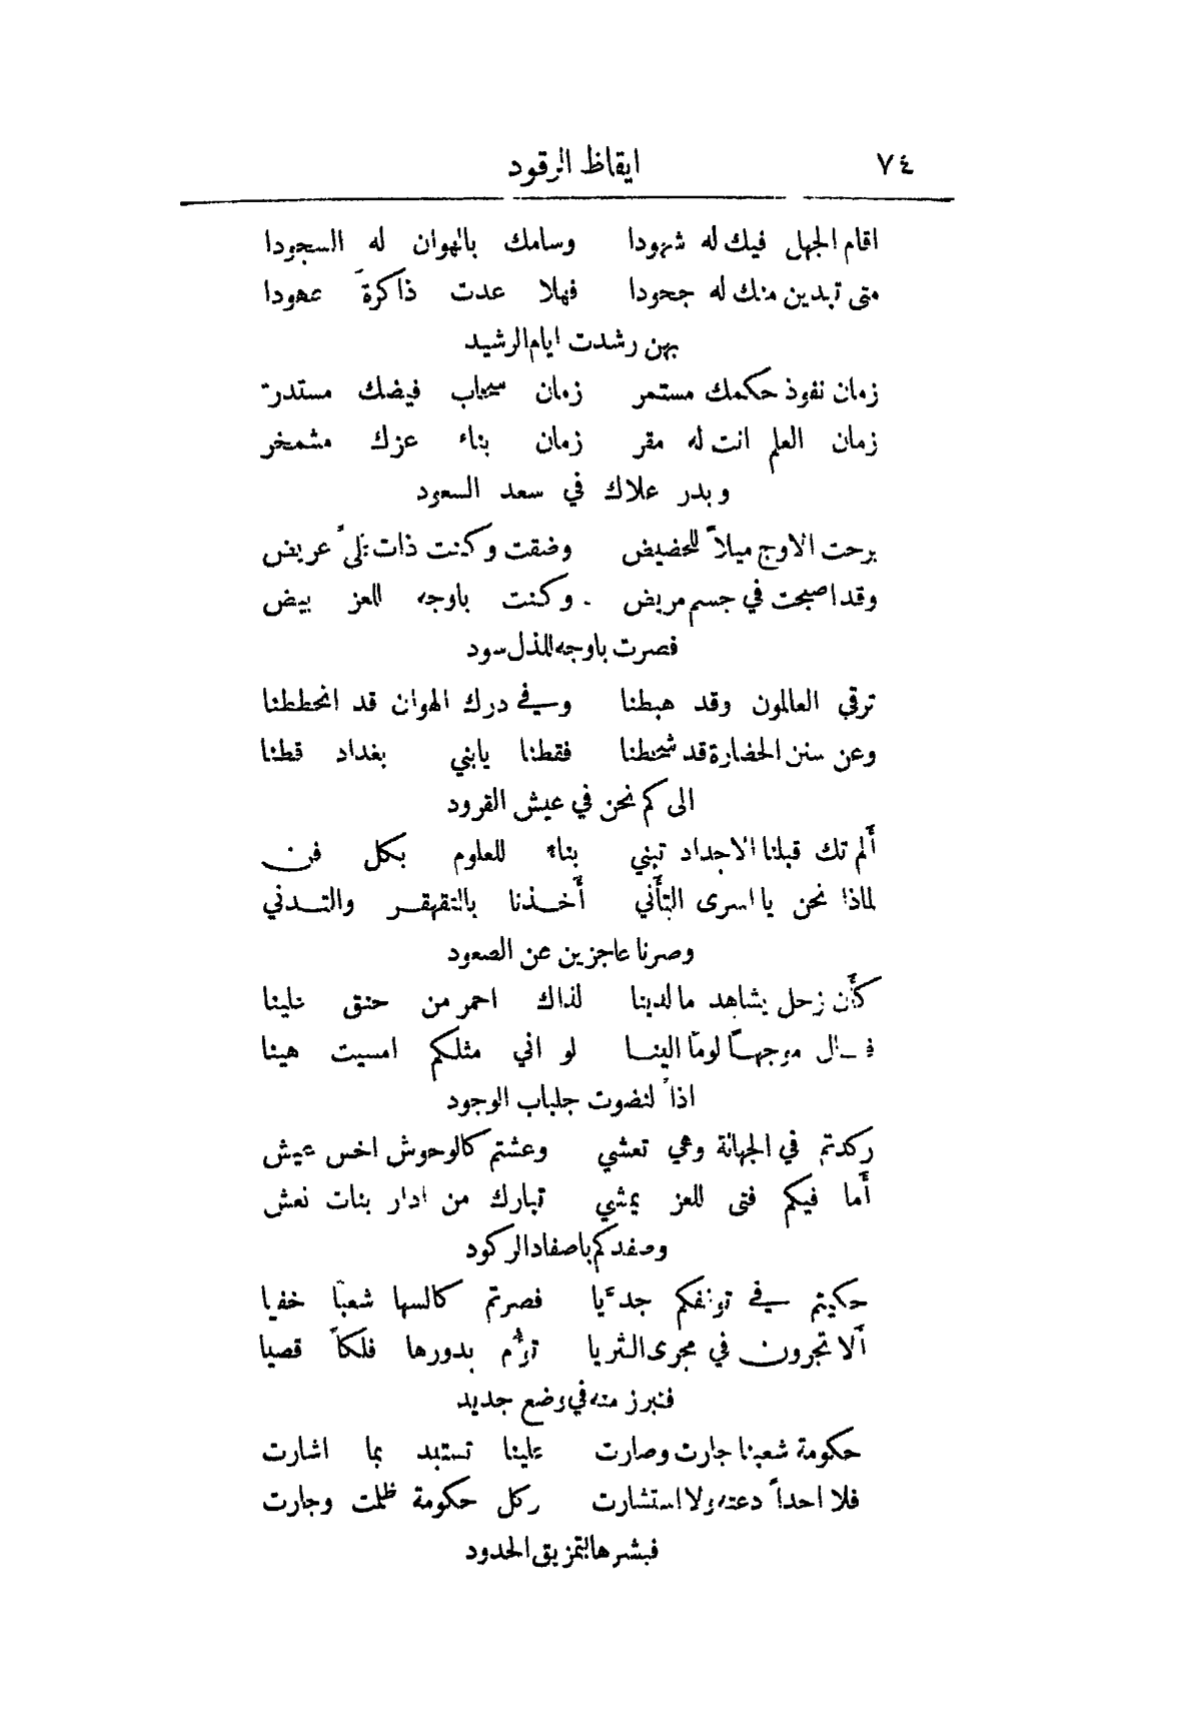 ٧٤ ايقاظ الرقود
اقام الجهل فيك له شهودا وسامك بالهوان له السجودا
متى تبدين منك له جحودا فهلا عدت ذاكرةً عهودا
بهن رشدت ايام الرشيد
زمان نفوذ حكمك مستمر زمان سحاب فيضك مستدر
زمان العلم انت له مقر زمان بناء عزك مشمخر
وبدر علاك في سعد السعود
برحت الاوج ميلاً للحضيض وضقت وكنت ذات علىً عريض
وقد اصبحت في جسم مريض وكنت باوجه للعز بيض
فصرت باوجه للذل سود
ترقي العالمون وقد هبطنا وفي درك الهوان قد انحططنا
وعن سنن الحضارة قد شحطنا فقطنا يابني بغداد قطنا
الى كم نحن في عيش القرود
ألم تك قبلنا الاجداد تبني بناءً للعلوم بكل فن
لماذا نحن يا اسرى التأني أخذنا بالتقهقر والتدني
وصرنا عاجزين عن الصعود
كأن زحل يشاهد ما لدينا لذاك احمر من حنق علينا
فقال موجهاً لوماً الينا لو اني مثلكم امسيت هينا
اذاً لنضوت جلباب الوجود
ركدتم في الجهالة وهي تعشي وعشتم كالوحوش اخس عيش
أما فيكم فتى للعز يمشي تبارك من ادار بنات نعش
وصفدكم باصفاد الركود
حكيتم في توقفكم جديًا فصرتم كالسها شعبًا خفيا
ألا تجرون في مجرى الثريا تؤم بدورها فلكاً قصيا
فتبرز منه في وضع جديد
حكومة شعبنا جارت وصارت علينا تستبد بما اشارت
فلا احداً دعته ولا استشارت وكل حكومة ظلمت وجارت
فبشرها بتمزيق الحدود